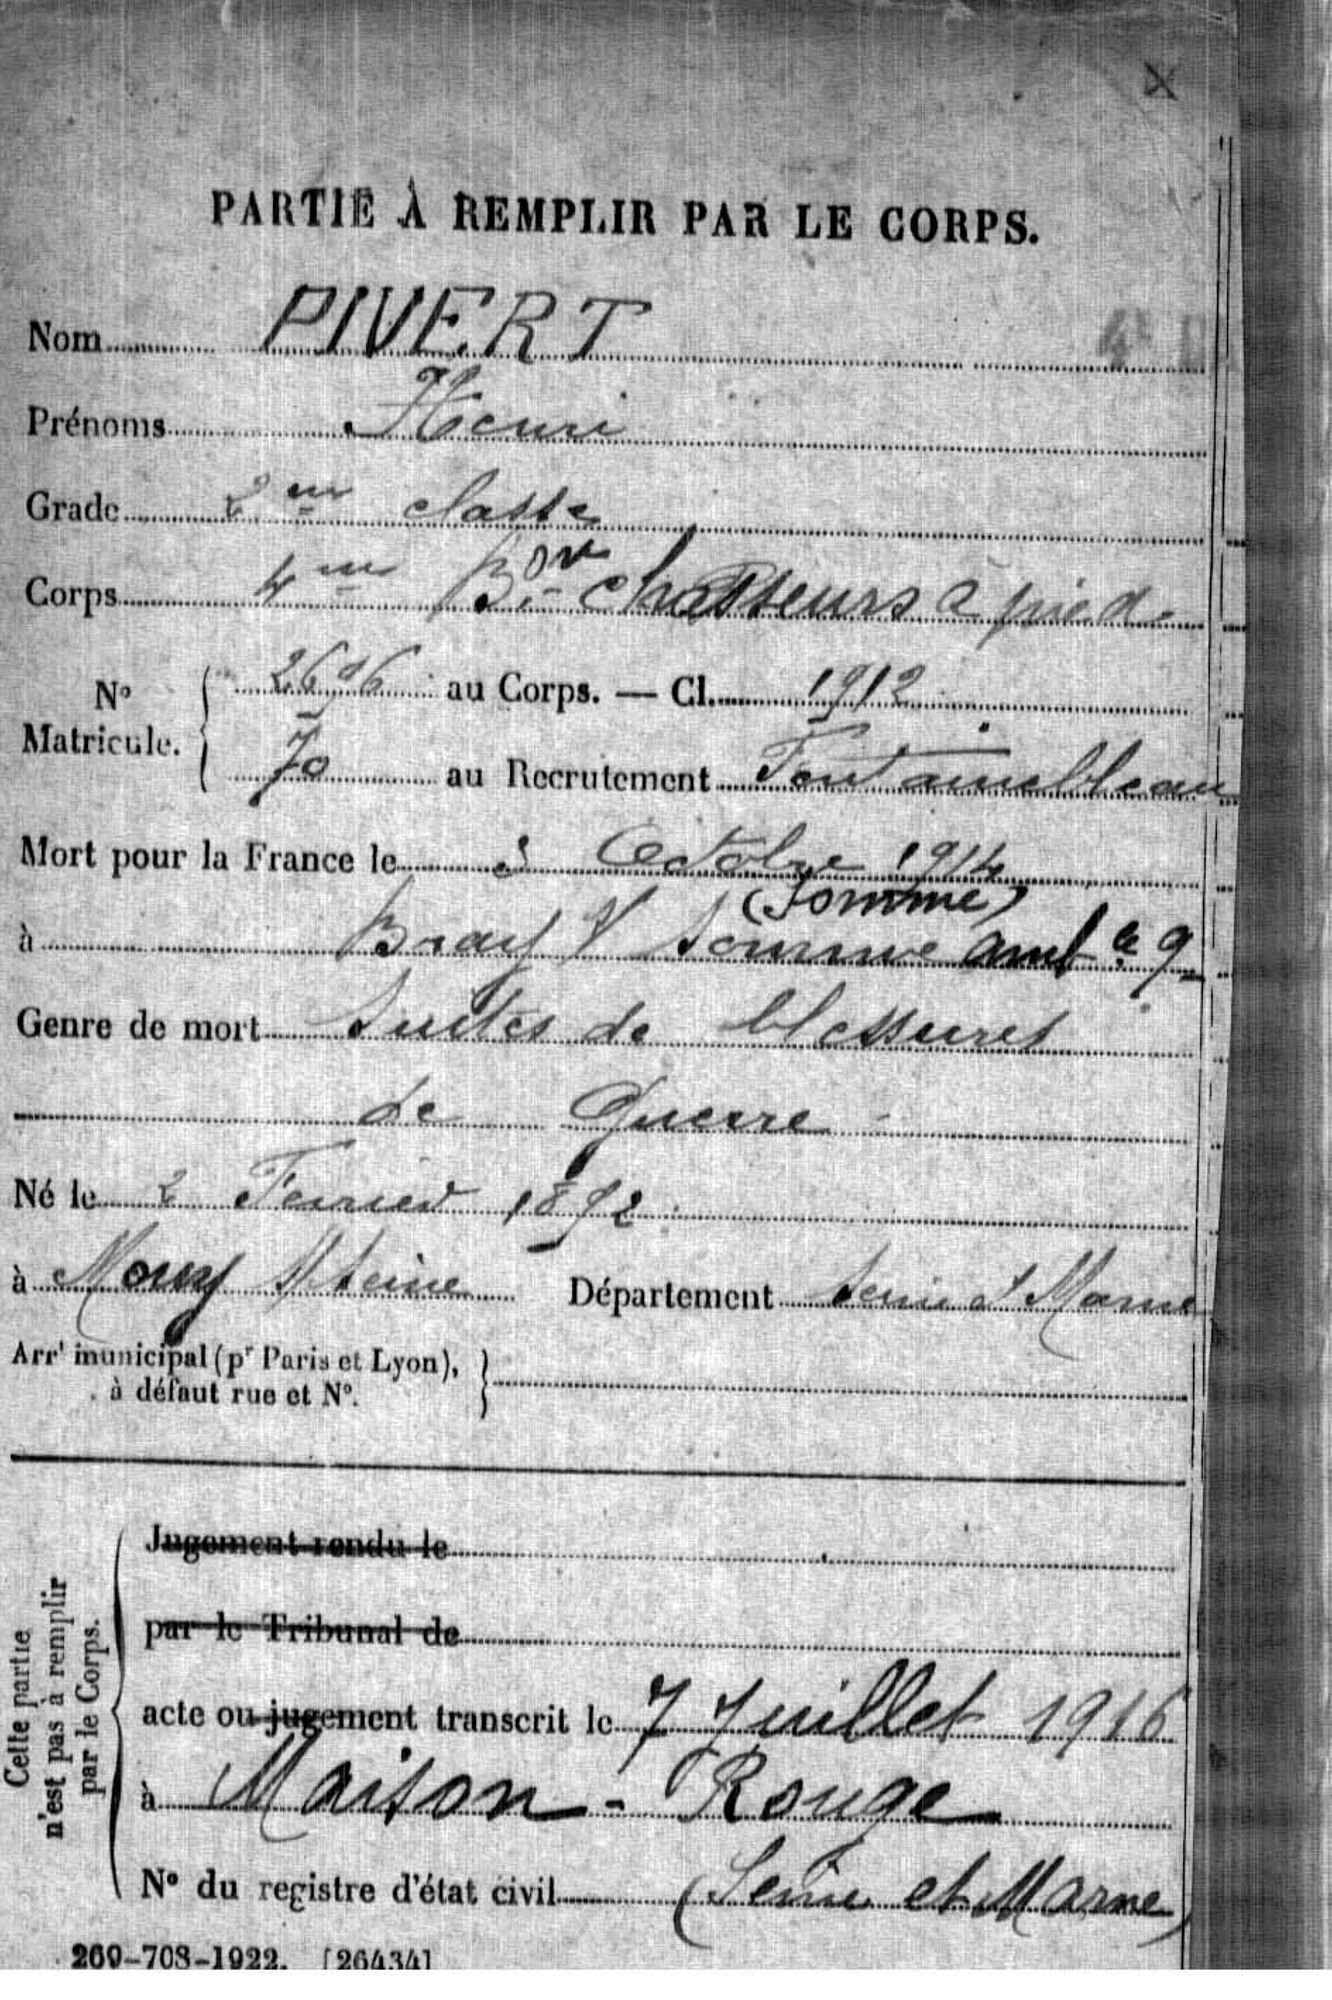 PARTIE À REMPLIR PAR LE CORPS.
Nom PIVERT
Prénoms Henri
Grade 2me classe
Corps 4me Bon Chasseurs à pied
No Matricule. 2696 au Corps. — Cl. 1912
70 au Recrutement Fontainebleau
Mort pour la France le Octobre 1914
(Somme)
à Bray s/ Somme ambce 9
Genre de mort Suites de blessures
de Guerre
Né le 2 Fevrier 1892
à Mouy s/ Seine Département Seine et Marne
Arrt municipal (pr Paris et Lyon),
à défaut rue et No.
Cette partie
n'est pas à remplir
par le Corps.
Jugement rendu le
par le Tribunal de
acte ou jugement transcrit le 7 Juillet 1916
à Maison-Rouge
No du registre d'état civil (Seine et Marne)
269-708-1922. [26434]